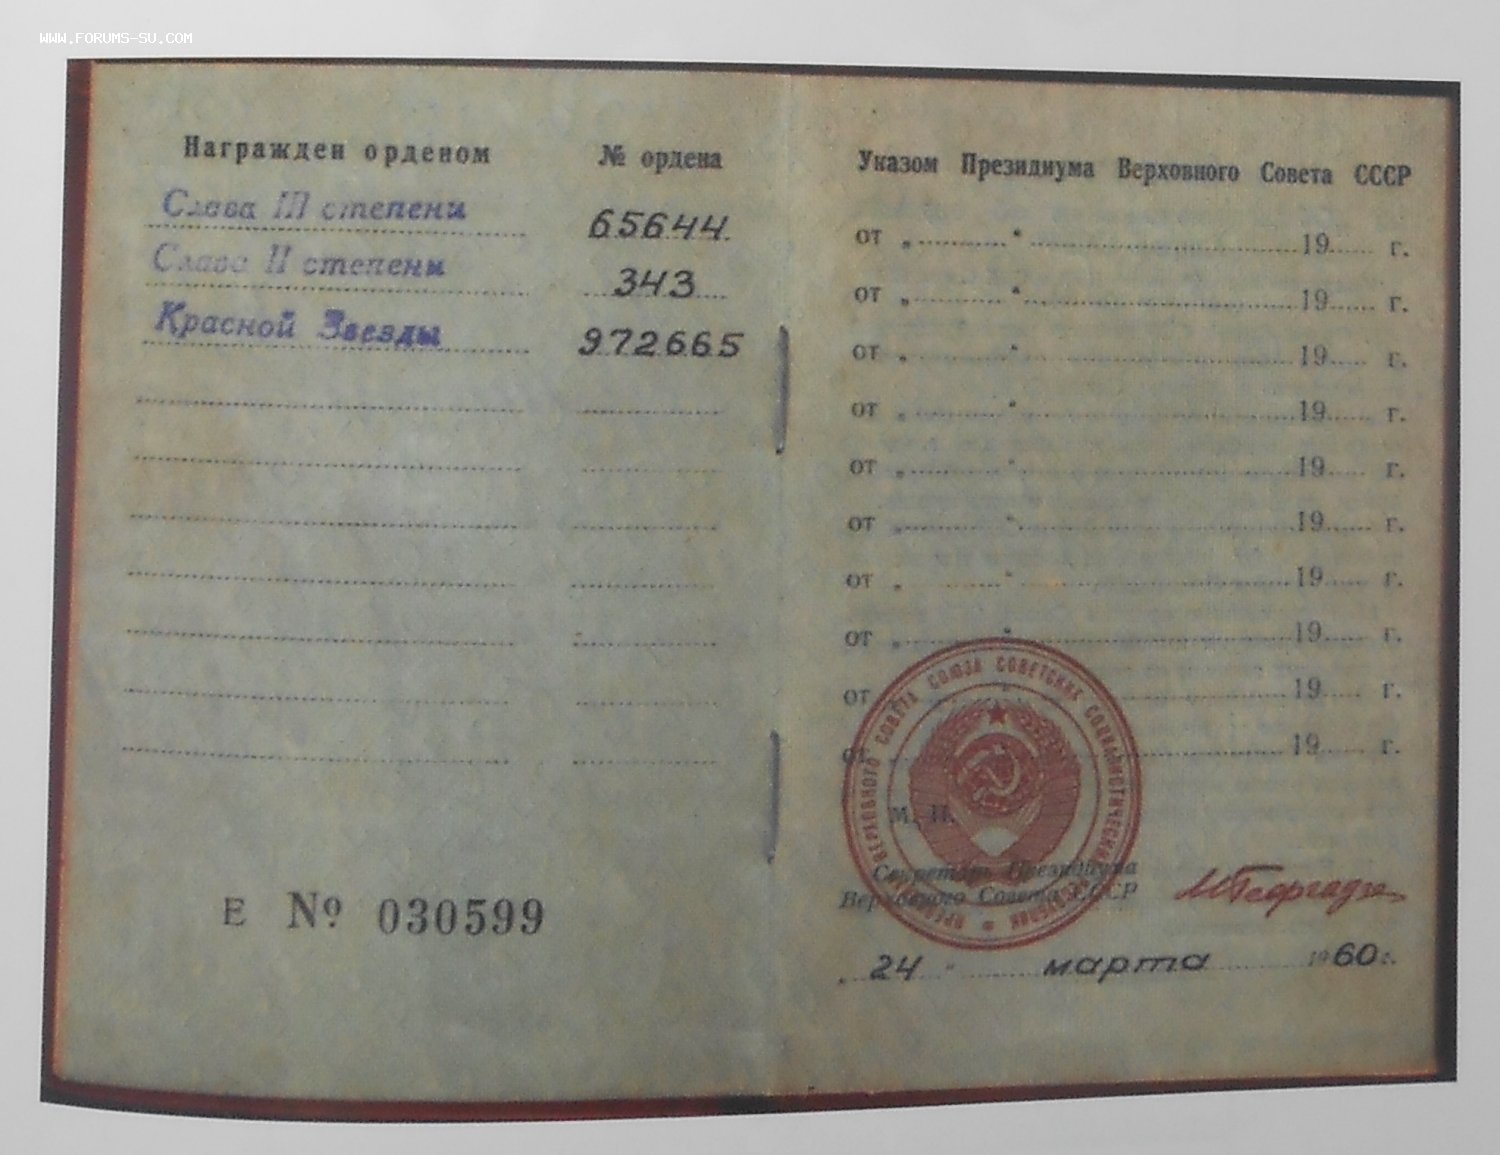 WWW.FORUMS-SU.COM
Награжден орденом № ордена
Слава III степени 65644
Слава II степени 343
Красной Звезды 972665
Е № 030599
Указом Президиума Верховного Совета СССР
от „ " 19 г.
от „ " 19 г.
от „ " 19 г.
от „ " 19 г.
от „ " 19 г.
от „ " 19 г.
от „ " 19 г.
от „ " 19 г.
от " 19 г.
от 19 г.
М. П.
ВЕРХОВНОГО СОВЕТА СОЮЗА СОВЕТСКИХ СОЦИАЛИСТИЧЕСКИХ
Секретарь Президиума
Верховного Совета СССР
М Георгадзе
„ 24 " марта 1960 г.